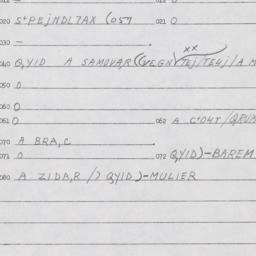 020 S*PEJNDL7AX (059 021 0
030 –
xx
040 Q,YID A SAMOVAR((VEGN
050 0
060 0
061 0 062 A C*O4T/QRUM
070 A BRA,C
071 0 072 Q,YID)-BAREM
080 A ZIDA,R/) Q,YID)-MULIER